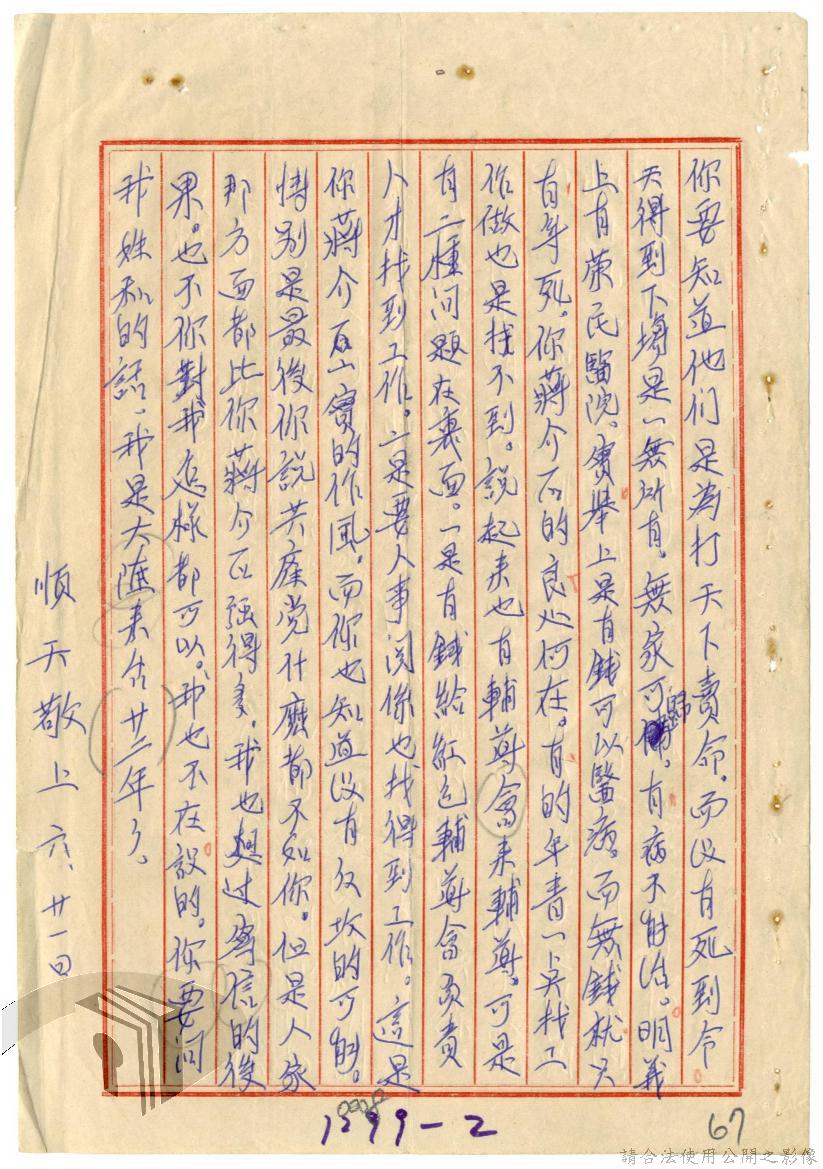 你要知道他们是為打天下賣命。而没有死到今
天得到下場是一無所有。無家可歸。有病不能治。明義
上有荣民醫院。實举上是有錢可以醫病。而無錢就只
有等死。你蔣介石的良心何在。有的年青一点找工
作做也是找不到。説起来也有輔導會来輔導。可是
有二種问題在裏面。一是有錢給紅包輔導會負責
人才找到工作。二是要人事関係也找得到工作。這是
你蔣介石一實的作風。而你也知道没有改故的可能。
特别是最後你説共產党什麽都不如你。但是人家
那方面都比你蔣介石强得多。我也想过寄信的後
果。也不你對我怎樣都可以。我也不在設的。你要问
我姓私的話、我是大陸来台廿二年了。
順天敬上 六、廿一日
1299-2
67
請合法使用公開之影像